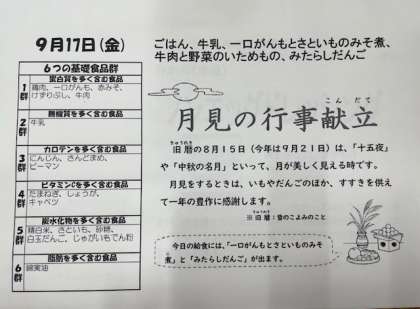 9月17日(金)
ごはん、牛乳、一口がんもとさといものみそ煮、
牛肉と野菜のいためもの、みたらしだんご
6つの基礎食品群
蛋白質を多く含む食品
1群
鶏肉、一口がんも、赤みそ、
けずりぶし、牛肉
無機質を多く含む食品
2群
牛乳
カロテンを多く含む食品
3群
にんじん、さんどまめ、
ピーマン
ビタミンCを多く含む食品
4群
たまねぎ、しょうが、
キャベツ
炭水化物を多く含む食品
5群
精白米、さといも、砂糖、
白玉だんご、じゃがいもでん粉
脂肪を多く含む食品
6群
綿実油
月見の行事献立
こんだて
きゅうれき
旧暦の8月15日(今年は9月21日)は、「十五夜」
や「中秋の名月」といって、月が美しく見える時です。
月見をするときは、いもやだんごのほか、すすきを供え
て一年の豊作に感謝します。
きゅうれき
※旧暦:昔のこよみのこと
今日の給食には、「一口がんもとさといものみそ
煮」と「みたらしだんご」が出ます。